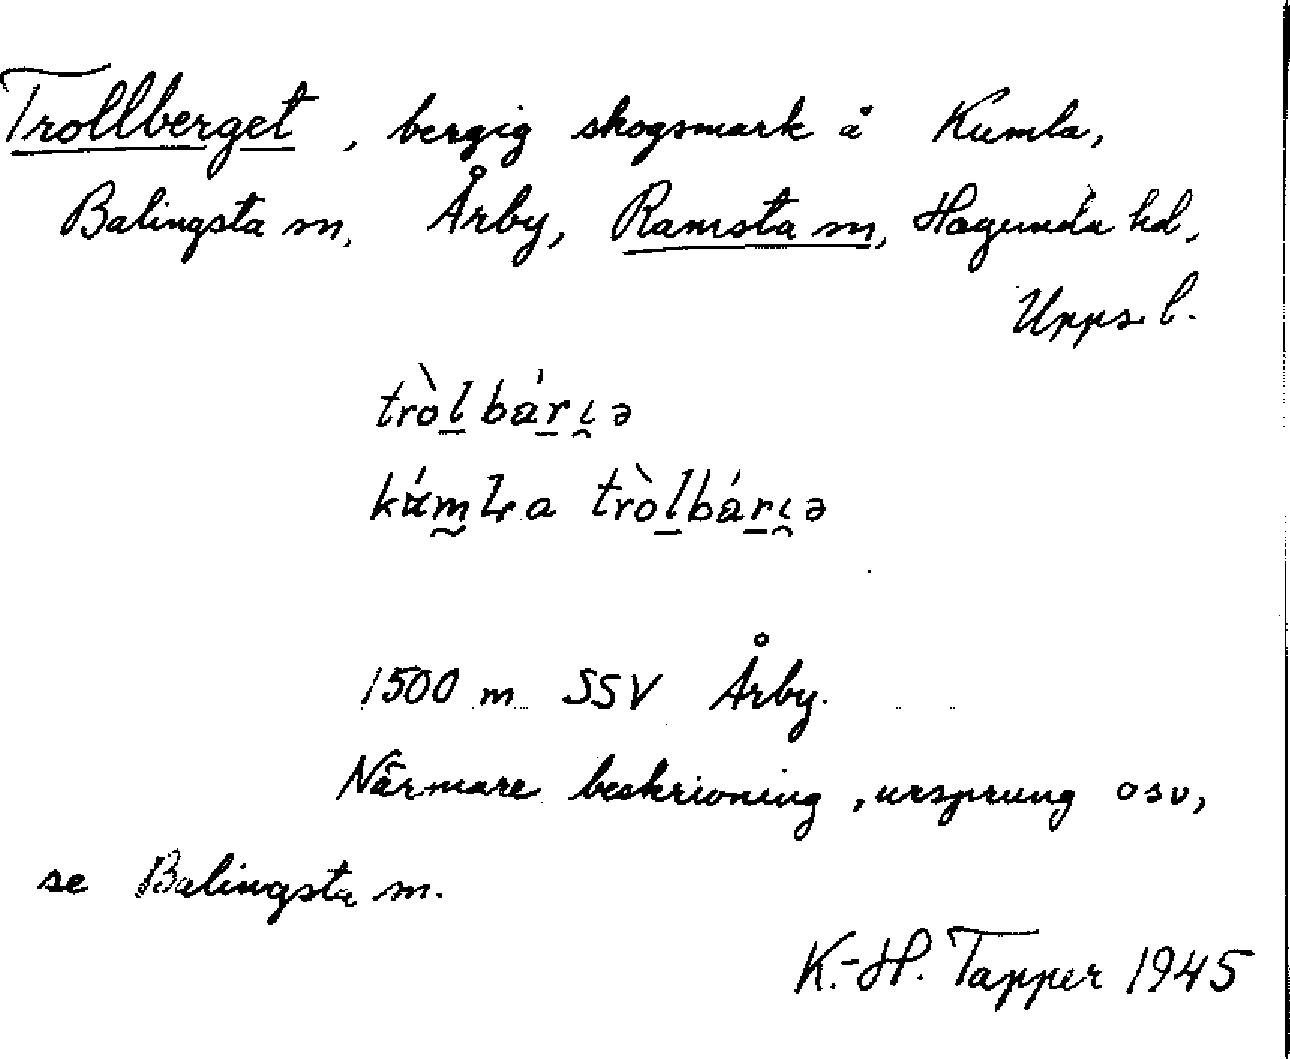 Trollberget, bergig skogsmark å Kumla,
Balingsta sn, Årby, Ramsta sn, Hagunda hd,
Upps. l.
1500 m SSV Årby.
Närmare beskrivning, ursprung osv,
se Balingsta sn.
K.-H. Tapper 1945